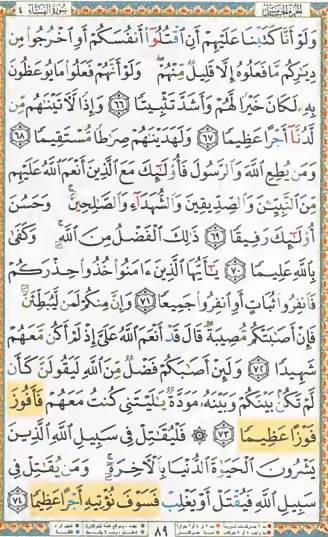 سورة النساء ٤
وَلَوْ أَنَّا كَتَبْنَا عَلَيْهِمْ أَنِ اقْتُلُوا أَنفُسَكُمْ أَوِ اخْرُجُوا مِن
دِيَارِكُم مَّا فَعَلُوهُ إِلَّا قَلِيلٌ مِّنْهُمْ ۖ وَلَوْ أَنَّهُمْ فَعَلُوا مَا يُوعَظُونَ
بِهِ لَكَانَ خَيْرًا لَّهُمْ وَأَشَدَّ تَثْبِيتًا ٦٦ وَإِذًا لَّآتَيْنَاهُم مِّن
لَّدُنَّا أَجْرًا عَظِيمًا ٦٧ وَلَهَدَيْنَاهُمْ صِرَاطًا مُّسْتَقِيمًا ٦٨
وَمَن يُطِعِ اللَّهَ وَالرَّسُولَ فَأُولَٰئِكَ مَعَ الَّذِينَ أَنْعَمَ اللَّهُ عَلَيْهِم
مِّنَ النَّبِيِّينَ وَالصِّدِّيقِينَ وَالشُّهَدَاءِ وَالصَّالِحِينَ ۚ وَحَسُنَ
أُولَٰئِكَ رَفِيقًا ٦٩ ذَٰلِكَ الْفَضْلُ مِنَ اللَّهِ ۚ وَكَفَىٰ
بِاللَّهِ عَلِيمًا ٧٠ يَا أَيُّهَا الَّذِينَ آمَنُوا خُذُوا حِذْرَكُمْ
فَانفِرُوا ثُبَاتٍ أَوِ انفِرُوا جَمِيعًا ٧١ وَإِنَّ مِنكُمْ لَمَن لَّيُبَطِّئَنَّ
فَإِنْ أَصَابَتْكُم مُّصِيبَةٌ قَالَ قَدْ أَنْعَمَ اللَّهُ عَلَيَّ إِذْ لَمْ أَكُن مَّعَهُمْ
شَهِيدًا ٧٢ وَلَئِنْ أَصَابَكُمْ فَضْلٌ مِّنَ اللَّهِ لَيَقُولَنَّ كَأَن
لَّمْ تَكُن بَيْنَكُمْ وَبَيْنَهُ مَوَدَّةٌ يَا لَيْتَنِي كُنتُ مَعَهُمْ فَأَفُوزَ
فَوْزًا عَظِيمًا ٧٣ ۞ فَلْيُقَاتِلْ فِي سَبِيلِ اللَّهِ الَّذِينَ
يَشْرُونَ الْحَيَاةَ الدُّنْيَا بِالْآخِرَةِ ۚ وَمَن يُقَاتِلْ فِي
سَبِيلِ اللَّهِ فَيُقْتَلْ أَوْ يَغْلِبْ فَسَوْفَ نُؤْتِيهِ أَجْرًا عَظِيمًا ٧٤
٨٩